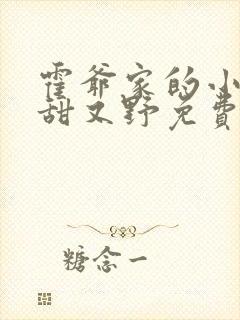 霍爷家的小
甜又野免费
糖念一